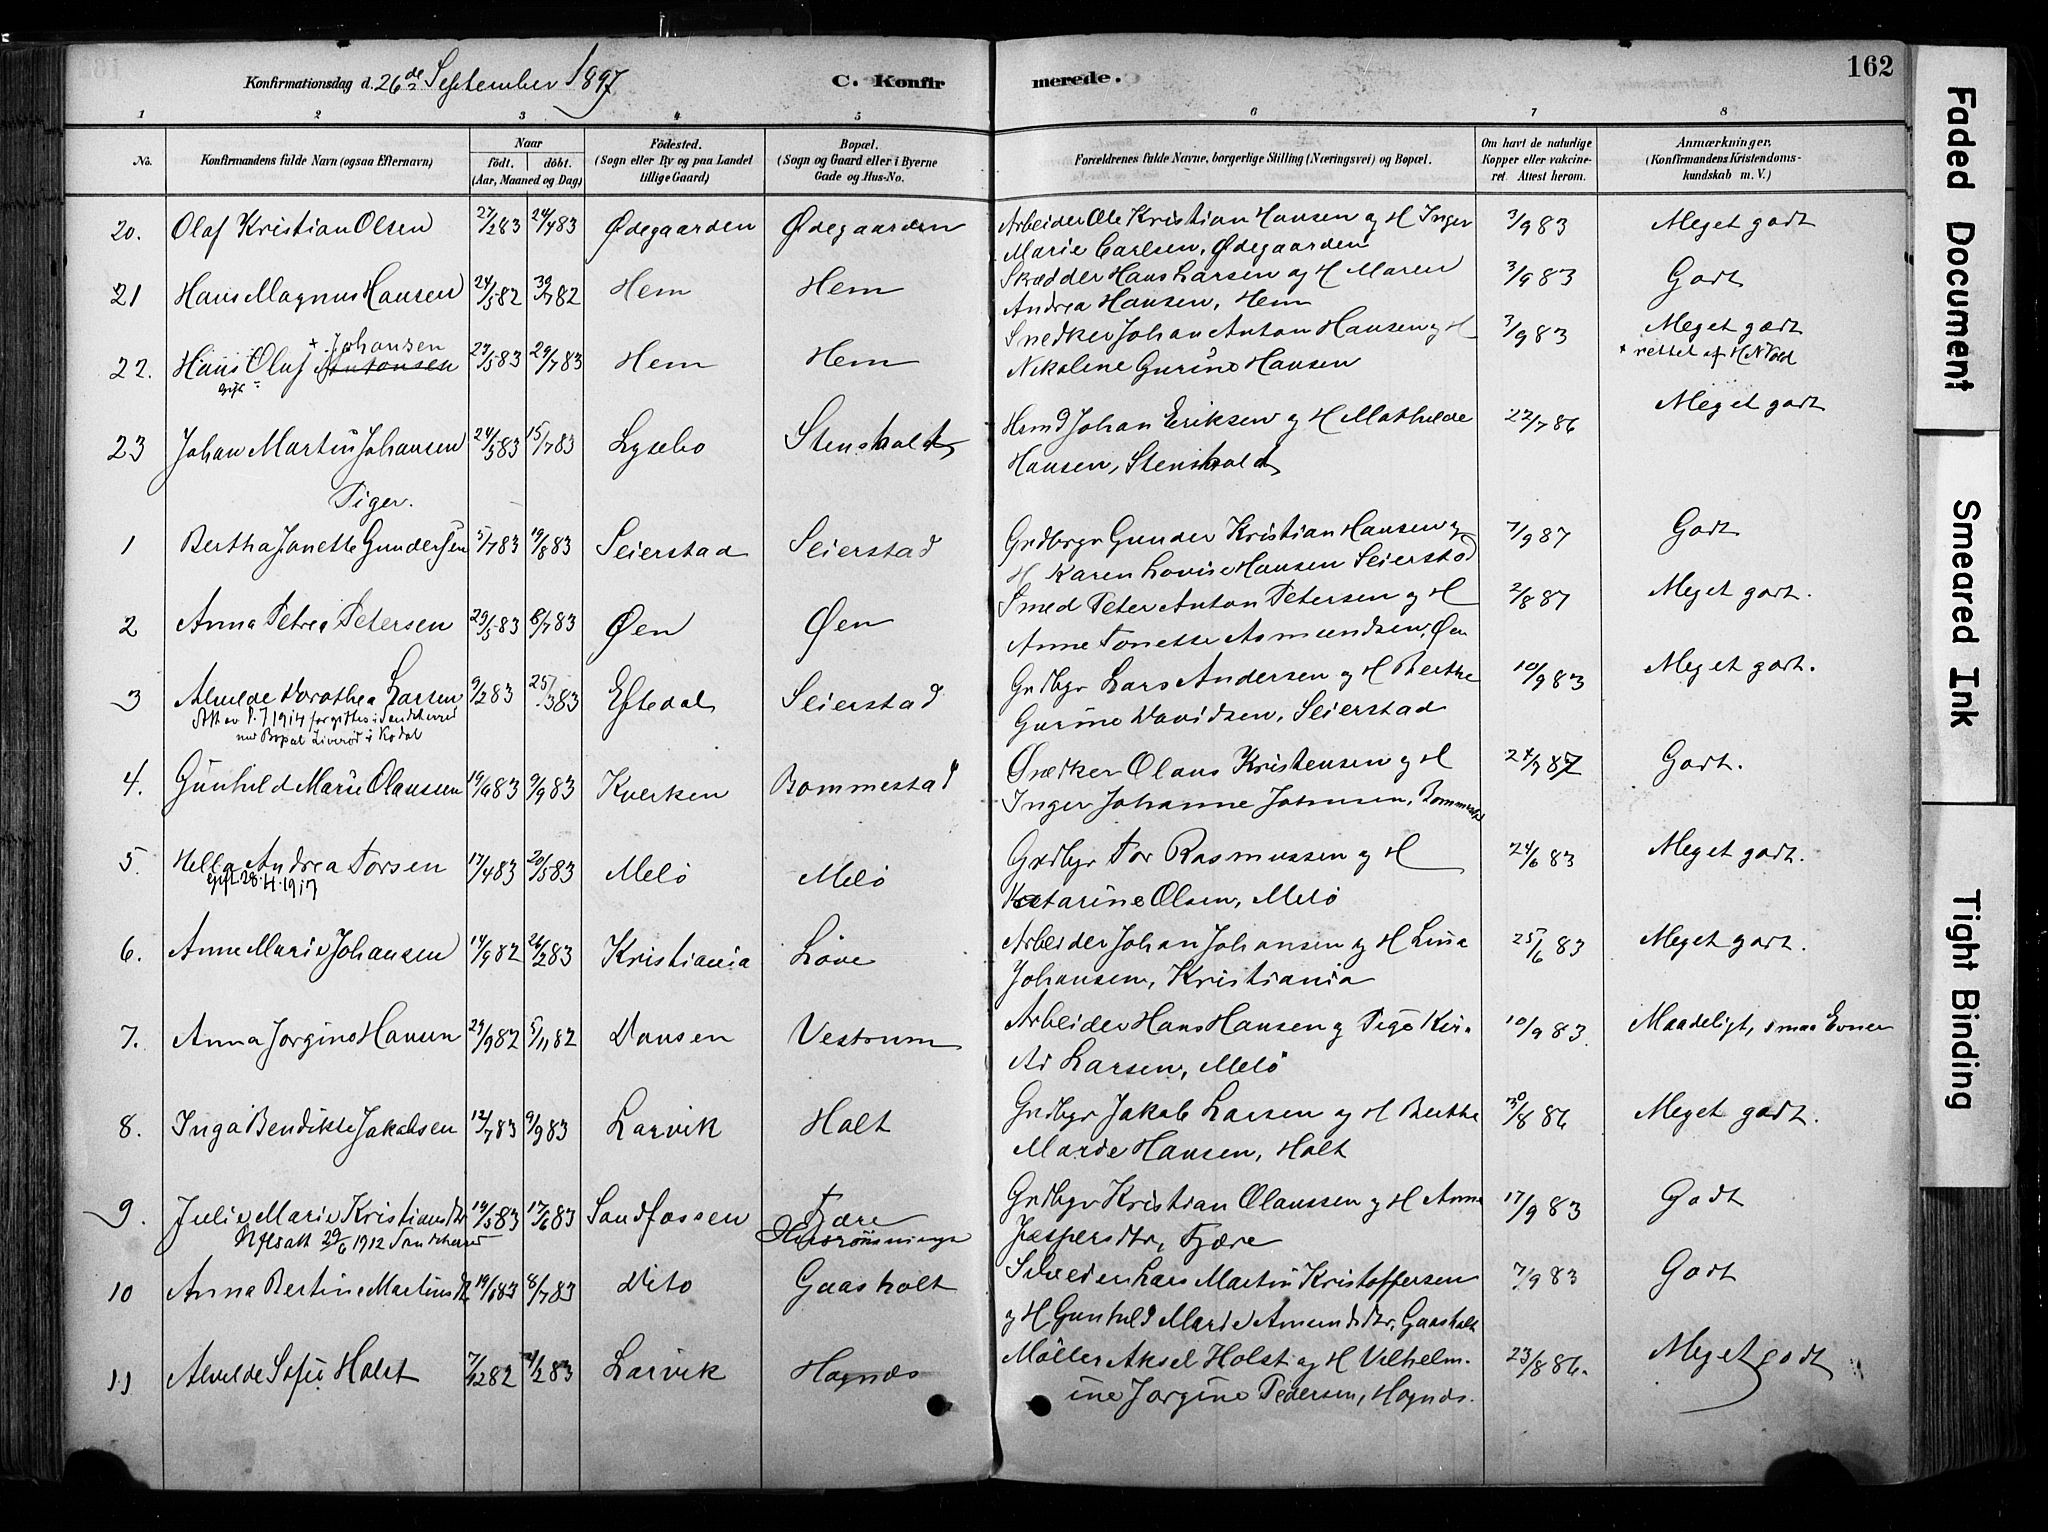 Konfirmationsdag d. 26de September 1897
C. Konfir
merede.
162
1 2 3 4 5 6 7 8
No.
Konfirmandens fulde Navn (ogsaa Efternavn)
Naar
født. döbt.
(Aar, Maaned og Dag)
Födested.
(Sogn eller By og paa Landet
tillige Gaard)
Bopæl.
(Sogn og Gaard eller i Byerne
Gade og Hus-No.
Forældrenes fulde Navne, borgerlige Stilling (Næringsvei) og Bopæl.
Om havt de naturlige
Kopper eller vakcine-
ret. Attest herom.
Anmærkninger.
(Konfirmandens Kristendoms-
kundskab m. V.)
20. Olaf Kristian Olsen 27/2 83 24/4 83 Ødegaarden Ødegaarden Arbeider Ole Kristian Hansen og H Inger 3/9 83 Meget godt
Marie Carlsen, Ødegaarden
21 Hans Magnus Hansen 24/5 82 30/7 82 Hem Hem Skrædder Hans Larsen og H Maren 3/9 83 Godt
Andrea Hansen, Hem
+ Johansen
22. Hans Oluf Antonsen 27/5 83 29/7 83 Hem Hem Snedker Johan Anton Hansen og H 3/9 83 Meget godt
Gift
Nikoline Gurine Hansen
+ rettet af
23 Johan Martin Johansen 24/5 83 15/7 83 Lysebo Stensholdt Hsmd Johan Eriksen og H Mathilde 22/7 86 Meget godt
Hansen, Stensholdt
Piger.
1 Bertha Janette Gundersen 5/7 83 19/8 83 Seierstad Seierstad Grdbrgr Gunder Kristian Hansen og 7/9 87 Godt
H Karen Lovise Hansen Seierstad
2 Anna Petrea Petersen 23/5 83 8/7 83 Øen Øen Smed Peter Anton Petersen og H 2/8 87 Meget godt.
Anne Tonette Asmundsen, Øen
3 Alvilde Dorothea Larsen 9/2 83 25/3 83 Eftedal Seierstad Grdbgr Lars Andersen og H Berthe 10/9 83 Meget godt.
Gurine Davidsen, Seierstad
Att av 1914 forgittes i Sandeherred
med Bopæl Liverød i Kodal
4. Gunhild Marie Olaussen 14/6 83 9/9 83 Kverken Bommestad Snedker Olaus Kristensen og H 24/7 87 Godt.
Inger Johanne Johnsen, Bommestad
5. Hella Andrea Torsen 17/4 83 20/5 83 Melö Melö Grdbgr Tor Rasmussen og H 24/6 83 Meget godt.
gift 28.4.1917
Katarine Olsen, Melö
6. Anne Marie Johansen 14/9 82 26/2 83 Kristiania Löve Arbeider Johan Johansen og H Lina 25/6 83 Meget godt.
Johansen, Kristiania
7. Anna Jorgine Hansen 29/9 82 5/11 82 Vestrum Arbeider Hans Hansen og Pige 10/9 83. Maadeligt, smaa Evner
Larsen, Melö
8. Inga Bendikte Jakobsen 12/7 83 9/9 83 Larvik Holt Grdbgr Jakob Larsen og H Berthe 30/8 86 Meget godt.
Marie Hansen, Holt
9. Julie Marie Kristiansdtr 14/5 83 17/6 83 Sandfossen Fjære Grdbgr Kristian Olaussen og H Anne 17/9 83 Godt
29/6 1912 Sandeherred
Jespersdtr, Fjære
10 Anna Bertine Martinsdtr 19/1 83 8/7 83 Dito Gaasholt Lars Martin Kristoffersen 7/9 83 Godt
og H Gunhild Marie Amundsdtr. Gaasholt
11 Alvilde Sofie Holst 7/12 82 2/2 83 Larvik Hognds Møller Aksel Holst og H Vilhelm- 23/8 86. Meget godt
ine Jorgine Pedersen, Hognds.
Faded Document
Smeared Ink
Tight Binding